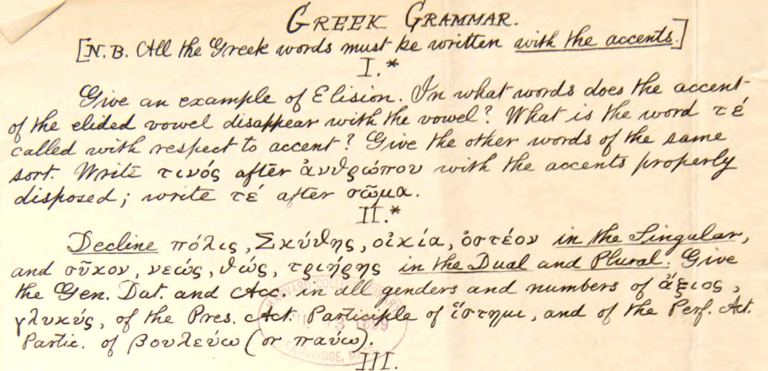 GREEK GRAMMAR.
[N.B. All the Greek words must be written with the accents.]
I.*
Give an example of Elision. In what words does the accent
of the elided vowel disappear with the vowel? What is the word τέ
called with respect to accent? Give the other words of the same
sort. Write τινός after ἀνθρώπου with the accents properly
disposed; write τέ after σῶμα.
II.*
Decline πόλις, Σκύθης, οἰκία, ὀστέον in the Singular,
and σῦκον, νεώς, θώς, τριήρης in the Dual and Plural. Give
the Gen. Dat. and Acc. in all genders and numbers of ἄξιος,
γλυκύς, of the Pres. Act. Participle of ἵστημι, and of the Perf. Act.
Partic. of βουλεύω (or παύω).
III.